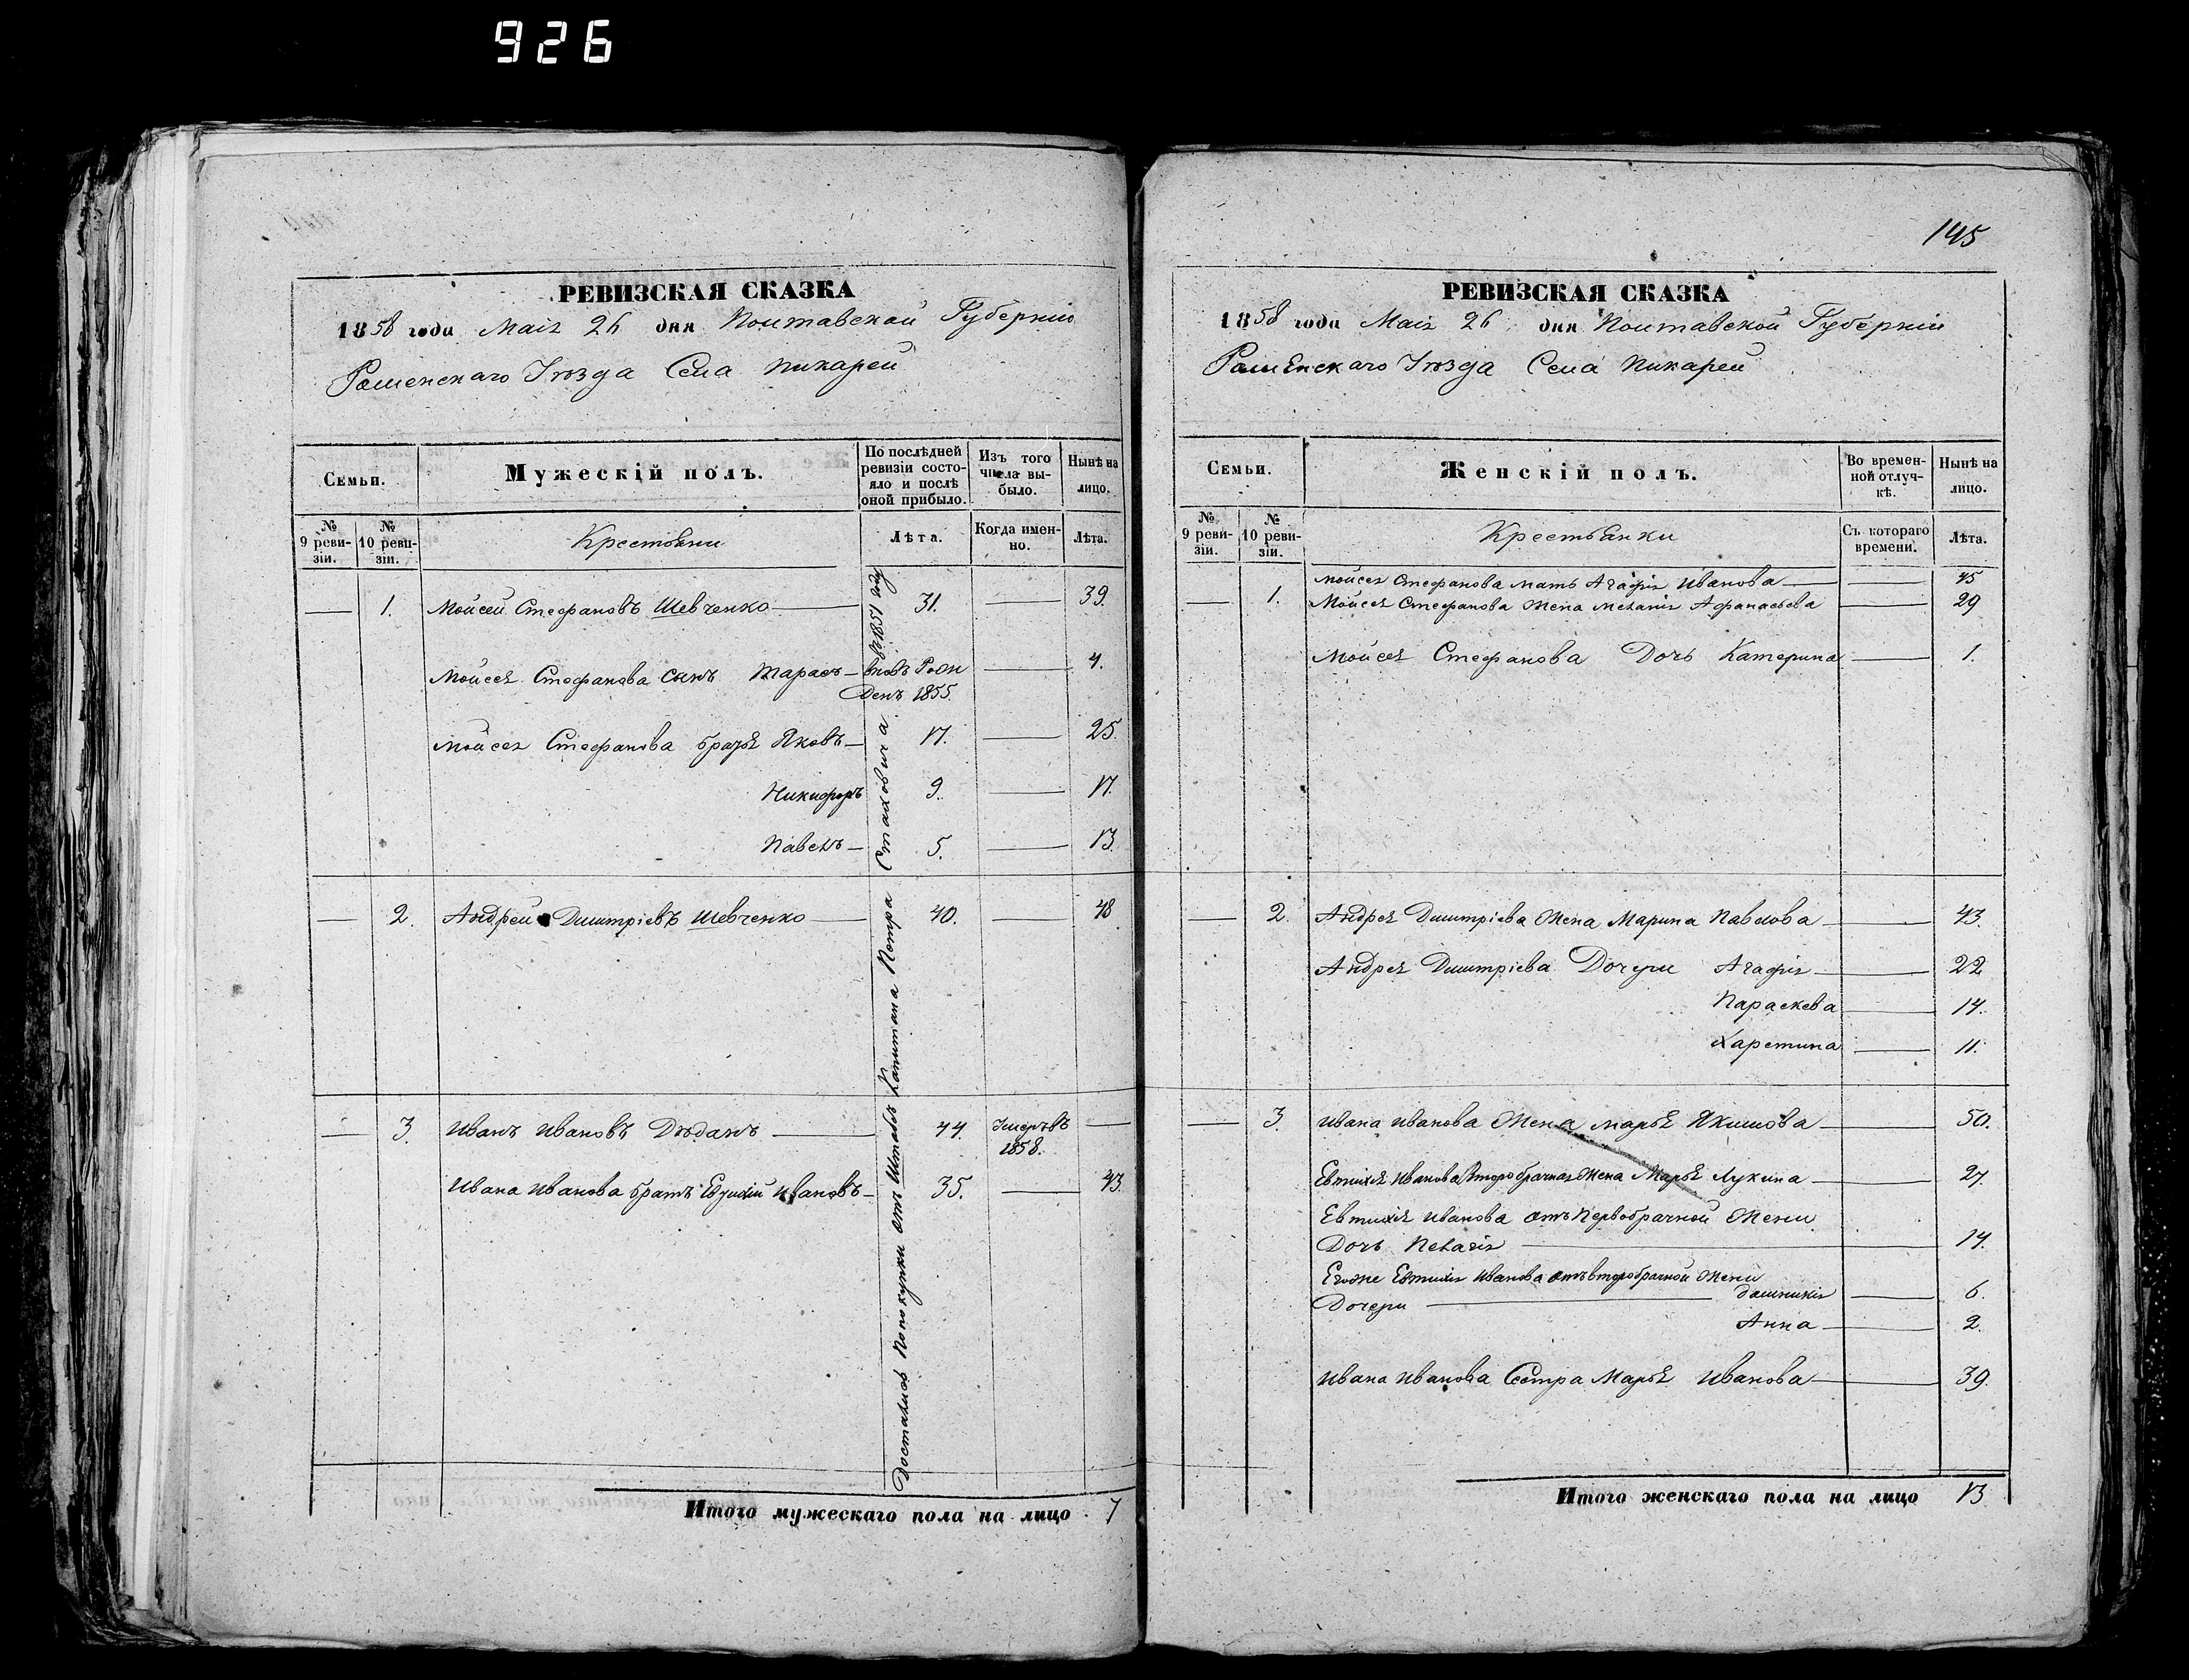 926
РЕВИЗСКАЯ СКАЗКА
1858 года Маія 26 дня Полтавской Губерніи
Роменскаго Уѣзда Села Пикарей
Семьи.
Мужескій полъ.
По послѣдней ревизіи состояло и послѣ оной прибыло.
Изъ того числа выбыло.
Нынѣ на лицо.
№ 9 ревизіи.
№ 10 ревизіи.
Крестьяни
Лѣта.
Когда именно.
Лѣта.
1. Мойсей Стефановъ Шевченко 31. 39.
Мойсея Стефанова сынъ Тарасъ вновь Рож
денъ 1855. 4.
Мойсея Стефанова братья Яковъ 17. 25.
Никифоръ 9. 17.
Павелъ 5. 13.
2. Андрей Дмитріевъ Шевченко 40. 48
3. Иванъ Ивановъ Дѣданъ 44. Умеръ въ
1858.
Ивана Иванова братъ Евтихій Ивановъ 35. 43.
Достались По покупки отъ Штабъ Капитана Петра Стаховича въ 1851 году
Итого мужескаго пола на лицо 7
145
РЕВИЗСКАЯ СКАЗКА
1858 года Маія 26 дня Полтавской Губерніи
Роменскаго Уѣзда Села Пикарей
Семьи.
Женскій полъ.
Во временной отлучкѣ.
Нынѣ на лицо.
№ 9 ревизіи.
№ 10 ревизіи.
Крестьянки
Съ котораго времени.
Лѣта.
Мойсея Стефанова мать Агафія Иванова 45
1. Мойсея Стефанова жена Меланія Афанасьева 29
Мойсея Стефанова Дочь Катерина 1.
2. Андрея Дмитріева жена Марина Павлова 43.
Андрея Дмитріева Дочери Агафія 22
Параскева 14.
Харетина 11.
3. Ивана Иванова Жена Марья Якимова 50.
Евтихія Иванова Второбрачная жена Марья Лукина 27.
Евтихія Иванова отъ Первобрачной Жени
Дочь Пелагія 14.
Егоже Евтихія Иванова отъ второбрачной жени
Дочери Домникія 6.
Анна 2.
Ивана Иванова Сестра Марья Иванова 39.
Итого женскаго пола на лицо 13